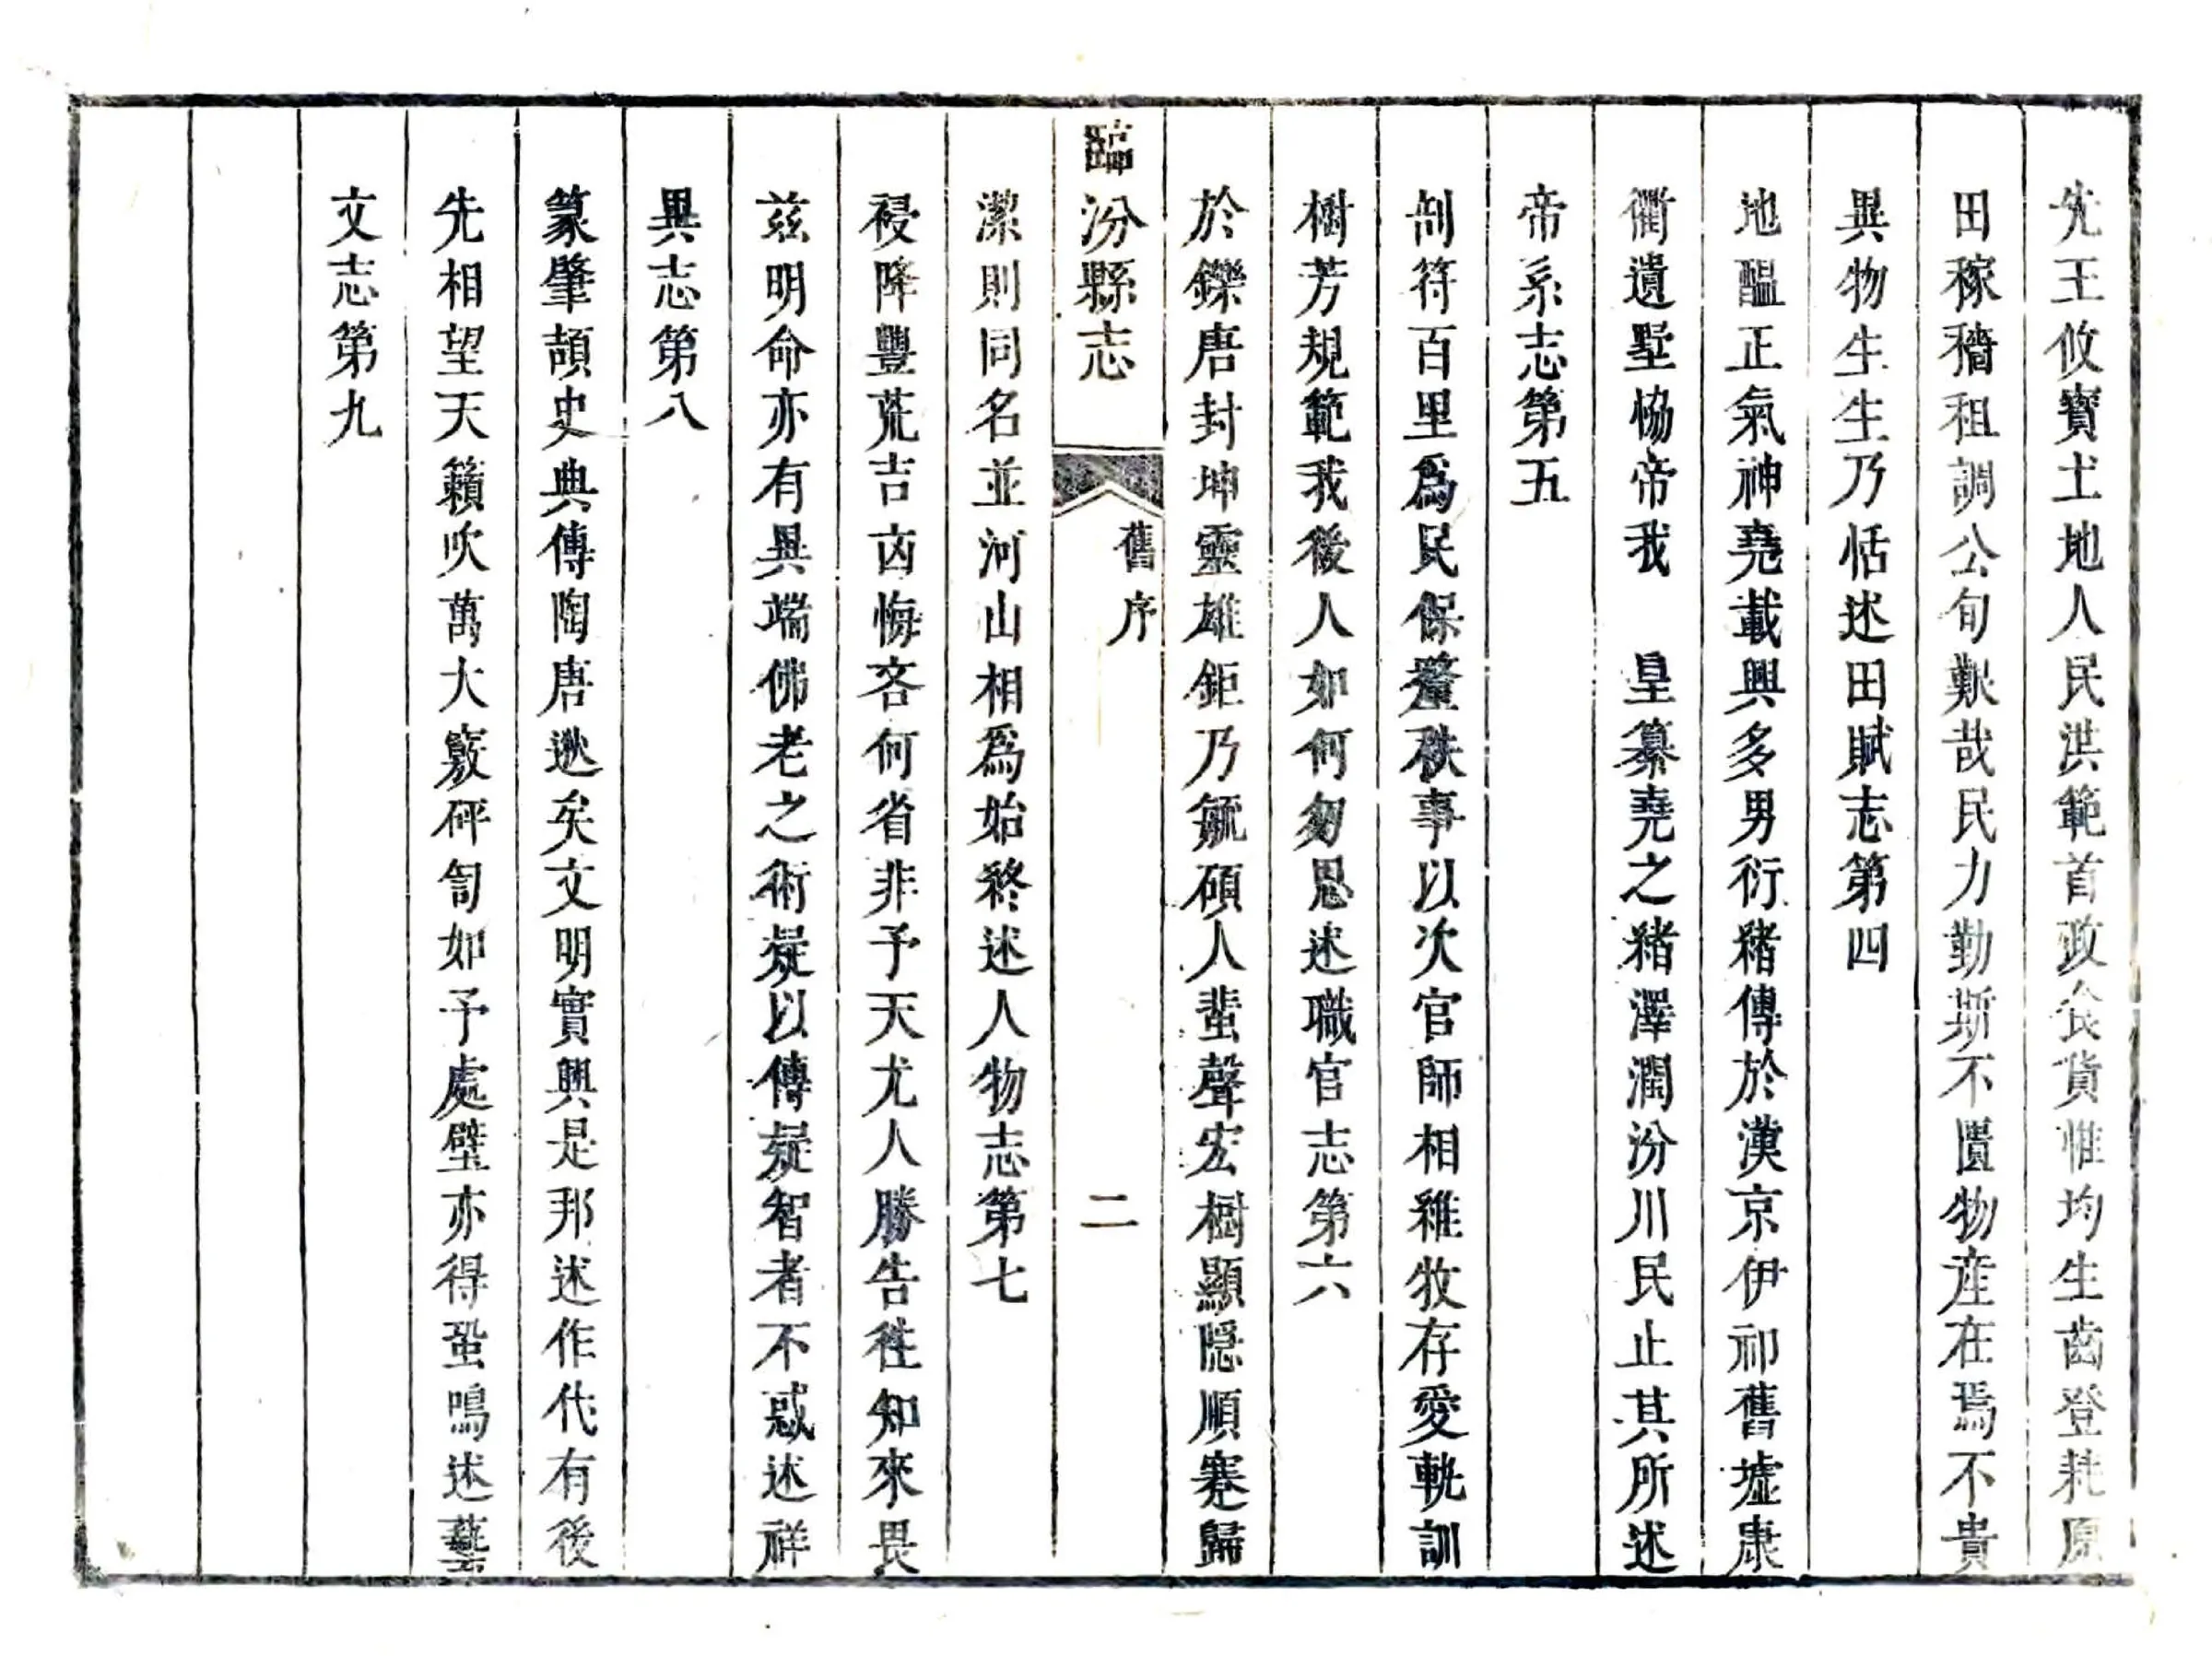 先王攸寶土地人民洪範首政食貨惟均生齒登耗原
田稼穡租調公旬艱哉民力勤斯不匱物産在焉不貴
異物生生乃恬述田賦志第四
地醞正氣神堯載興多男衍緒傳於漢京伊祁舊墟康
衢遺墅恊帝我　皇纂堯之緒澤潤汾川民止其所述
帝系志第五
剖符百里爲民保釐秩事以次官師相維牧存愛軌訓
樹芳規範我後人如何勿思述職官志第六
於鑠唐封坤靈雄鉅乃毓碩人蜚聲宏樹顯隱順蹇歸
臨汾縣志
舊序
二
潔則同名並河山相爲始終述人物志第七
祲降豐荒吉凶悔吝何省非予天尤人勝告徃知來畏
茲明命亦有異端佛老之術疑以傳疑智者不惑述祥
異志第八
篆肇頡史典傳陶唐逖矣文明實興是邦述作代有後
先相望天籟吹萬大竅砰訇如予處壁亦得蛩鳴述藝
文志第九